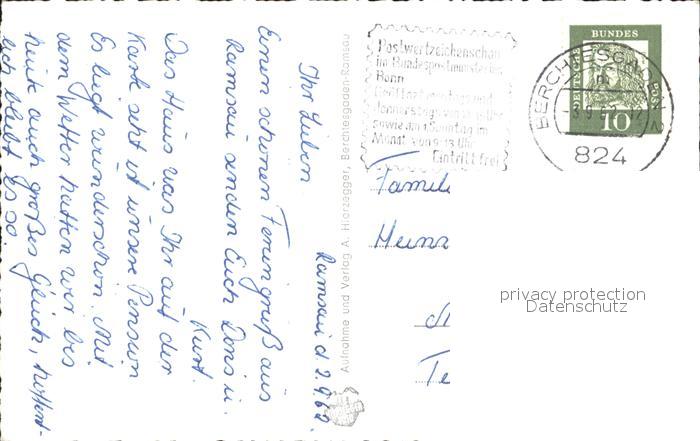 Ramsau d. 2.9.62
Ihr Lieben
Einen schönen Feriengruß aus
Ramsau senden Euch Doris u.
Kurt.
Das Haus was Ihr auf der
Karte seht ist unsere Pension
Es liegt wunderschön. Mit
dem Wetter hatten wir bis
heute auch großes Glück, hoffent-
lich bleibt es so
Aufnahme und Verlag A. Hierzegger, Berchtesgaden-Ramsau
Postwertzeichenschau
im Bundespostministerium
Bonn
Geöffnet
sowie am 1. Sonntag im
Monat von 9-13 Uhr
Eintritt frei
BERCHTESGADEN
824
DEUTSCHE
BUNDES
POST
10
Famil
Heinr
Te
privacy protection
Datenschutz